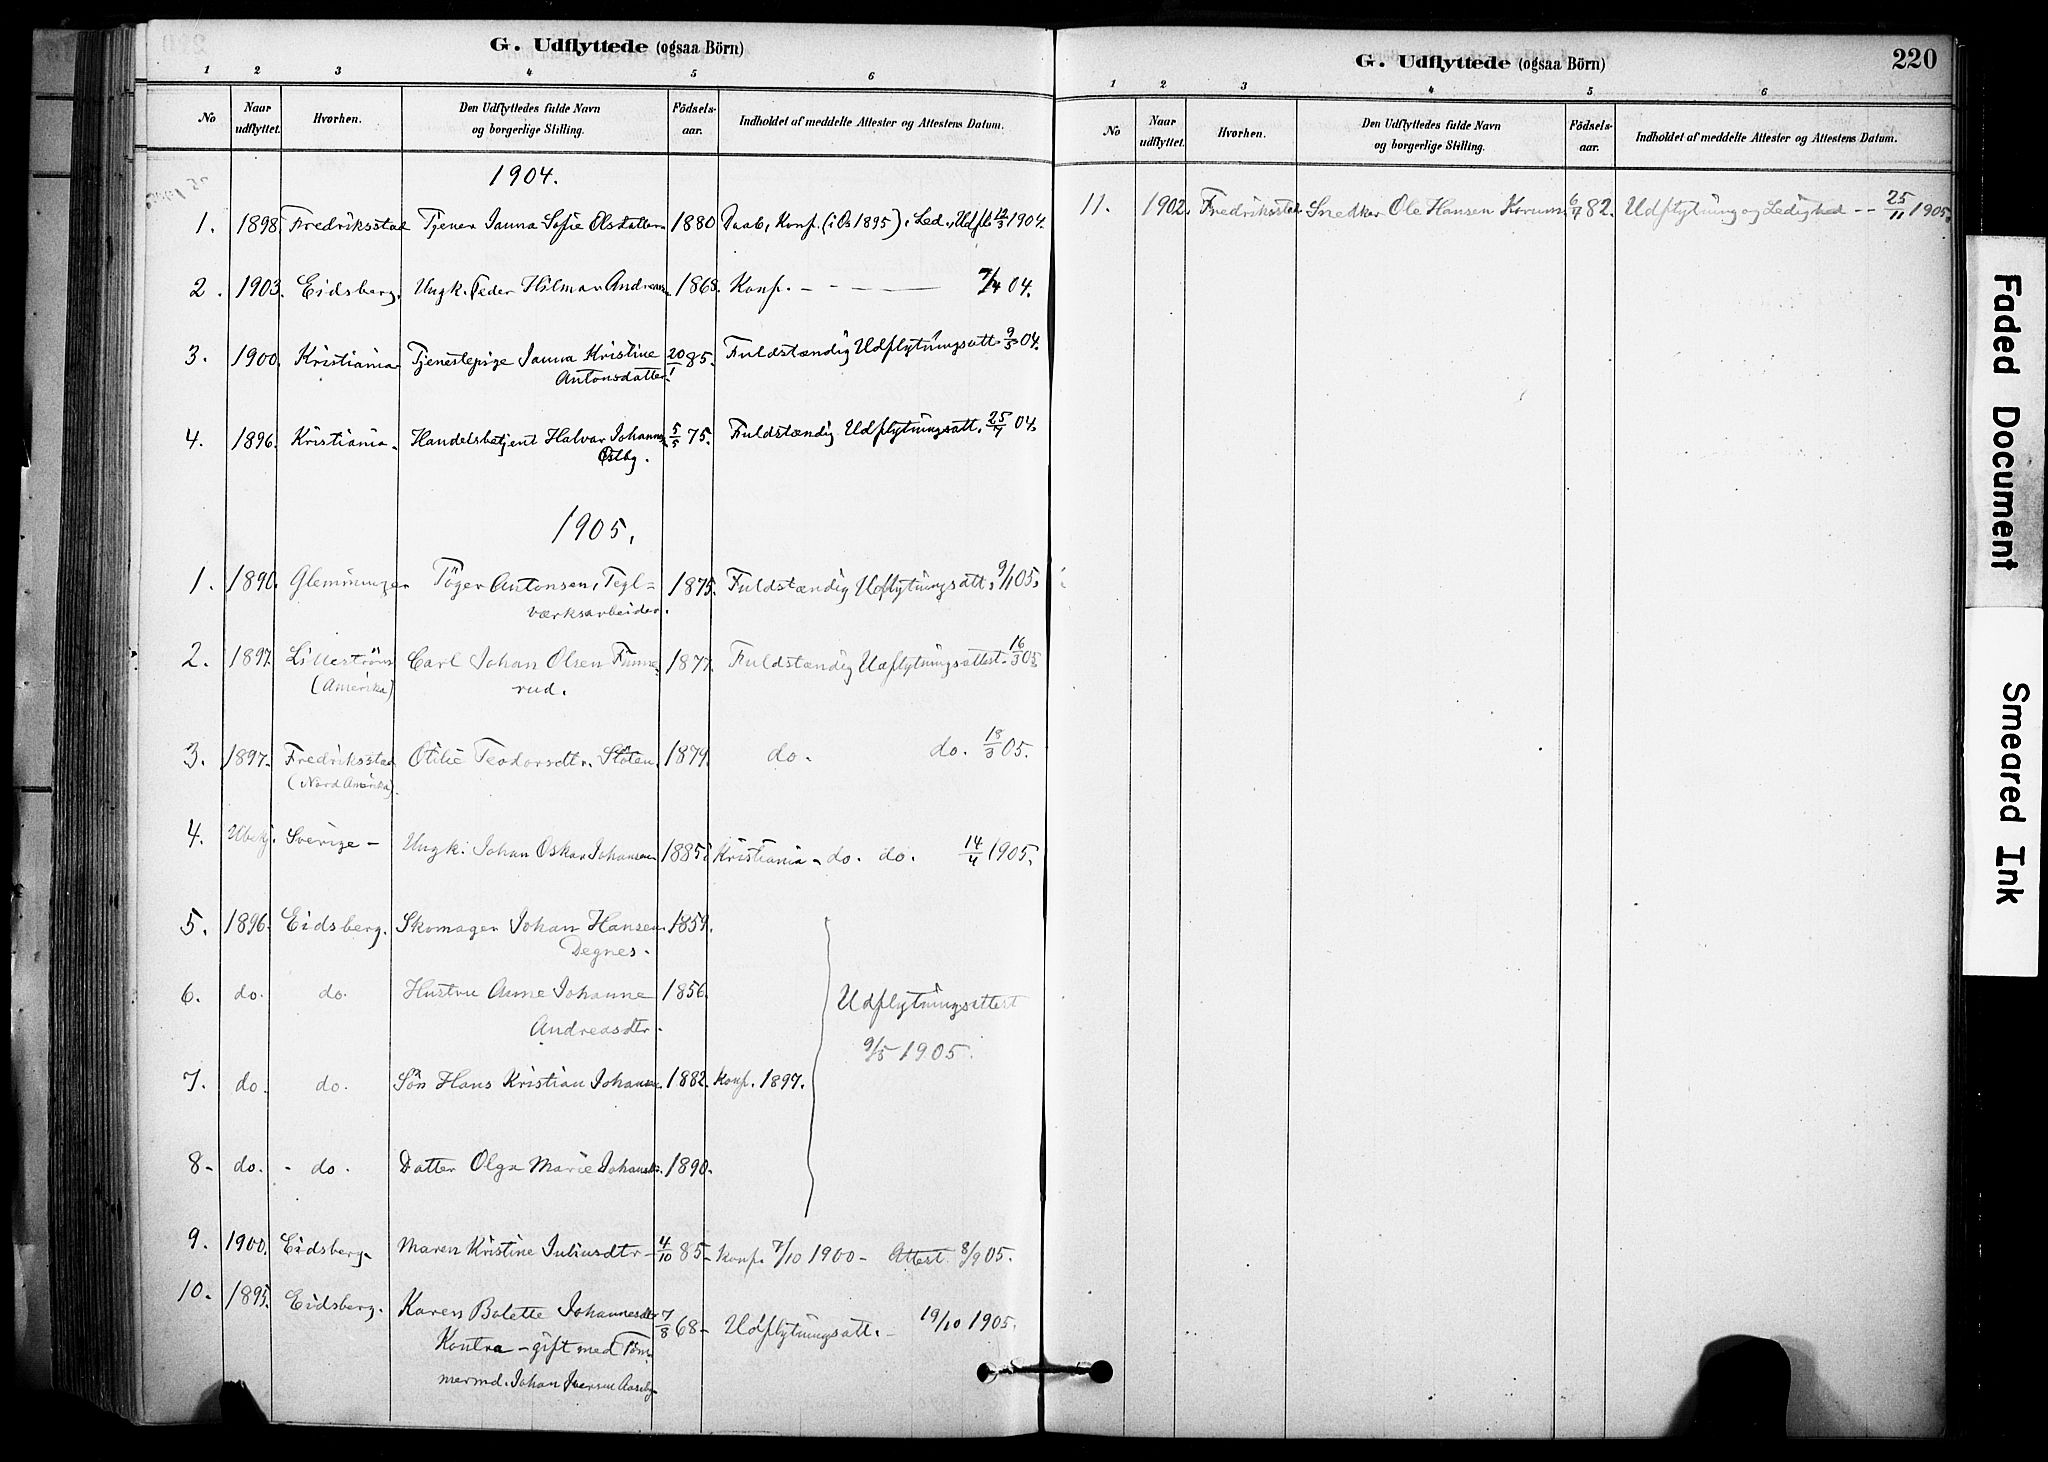 G. Udflyttede (ogsaa Börn)
1 2 3 4 5 6
No
Naar udflyttet.
Hvorhen.
Den Udflyttedes fulde Navn og borgerlige Stilling.
Födsels-aar.
Indholdet af meddelte Attester og Attestens Datum.
1904.
1. 1898. Fredriksstad Tjener Janna Sofie Olsdatter 1880 Daab, Konf. (i Os 1895), Led., Udfl. 12/3 1904.
2. 1903. Eidsberg. Ungk. Peder Hilmar Andreas 1868. Konf. - - - 7/4 04.
3. 1900. Kristiania Tjenestepige Janna Kristine 20/1 85. Fuldstændig Udflytningsatt. 9/5 04.
Antonsdatter
4. 1896. Kristiania - Handelsbetjent Halvar Johanns. 5/5 75. Fuldstændig Udflytningsatt. 25/7 04.
Østby.
1905.
1. 1890. Glemminge Töger Antonsen, Tegl- 1875. Fuldstændig Udflytningsatt. 9/1 05.
værksarbeider.
2. 1897. Lilleström Carl Johan Olsen Finne- 1877. Fuldstændig Udflytningsattest. 16/3 05
(Amerika) rud.
3. 1897. Fredriksstad Otilie Teodorsdtr. Slöten. 1879. do. do. 18/3 05.
(Nord Amerika).
4. Ubekj. Sverige - Ungk. Johan Oskar Johansen 1885. Kristiania - do. do. 14/4 1905.
5. 1896. Eidsberg. Skomager Johan Hansen 1859.
Degnes.
6. do. do. Hustru Anne Johanne 1856. Udflytningsattest
Andreasdtr. 9/5 1905.
7. do. do. Sön Hans Kristian Johansen. 1882. Konf. 1897.
8- do. - do. Datter Olga Marie Johansdtr. 1890.
9. 1900. Eidsberg. Maren Kristine Juliusdtr - 4/10 85 - Konf. 7/10 1900 - Attest 8/9 05.
10. 1895. Eidsberg. Karen Bolette Johannesdtr 7/8 68 - Udflytningsatt. - 19/10 1905.
Kontra - gift med Töm-
mermd. Johan Iversen Aaseby
G. Udflyttede (ogsaa Börn)
220
1 2 3 4 5 6
No
Naar udflyttet.
Hvorhen.
Den Udflyttedes fulde Navn og borgerlige Stilling.
Födsels-aar.
Indholdet af meddelte Attester og Attestens Datum.
11. 1902. Fredriksstad Snedker Ole Hansen Korum. 6/7 82. Udflytning og Ledighed - - 25/11 1905.
Faded Document
Smeared Ink